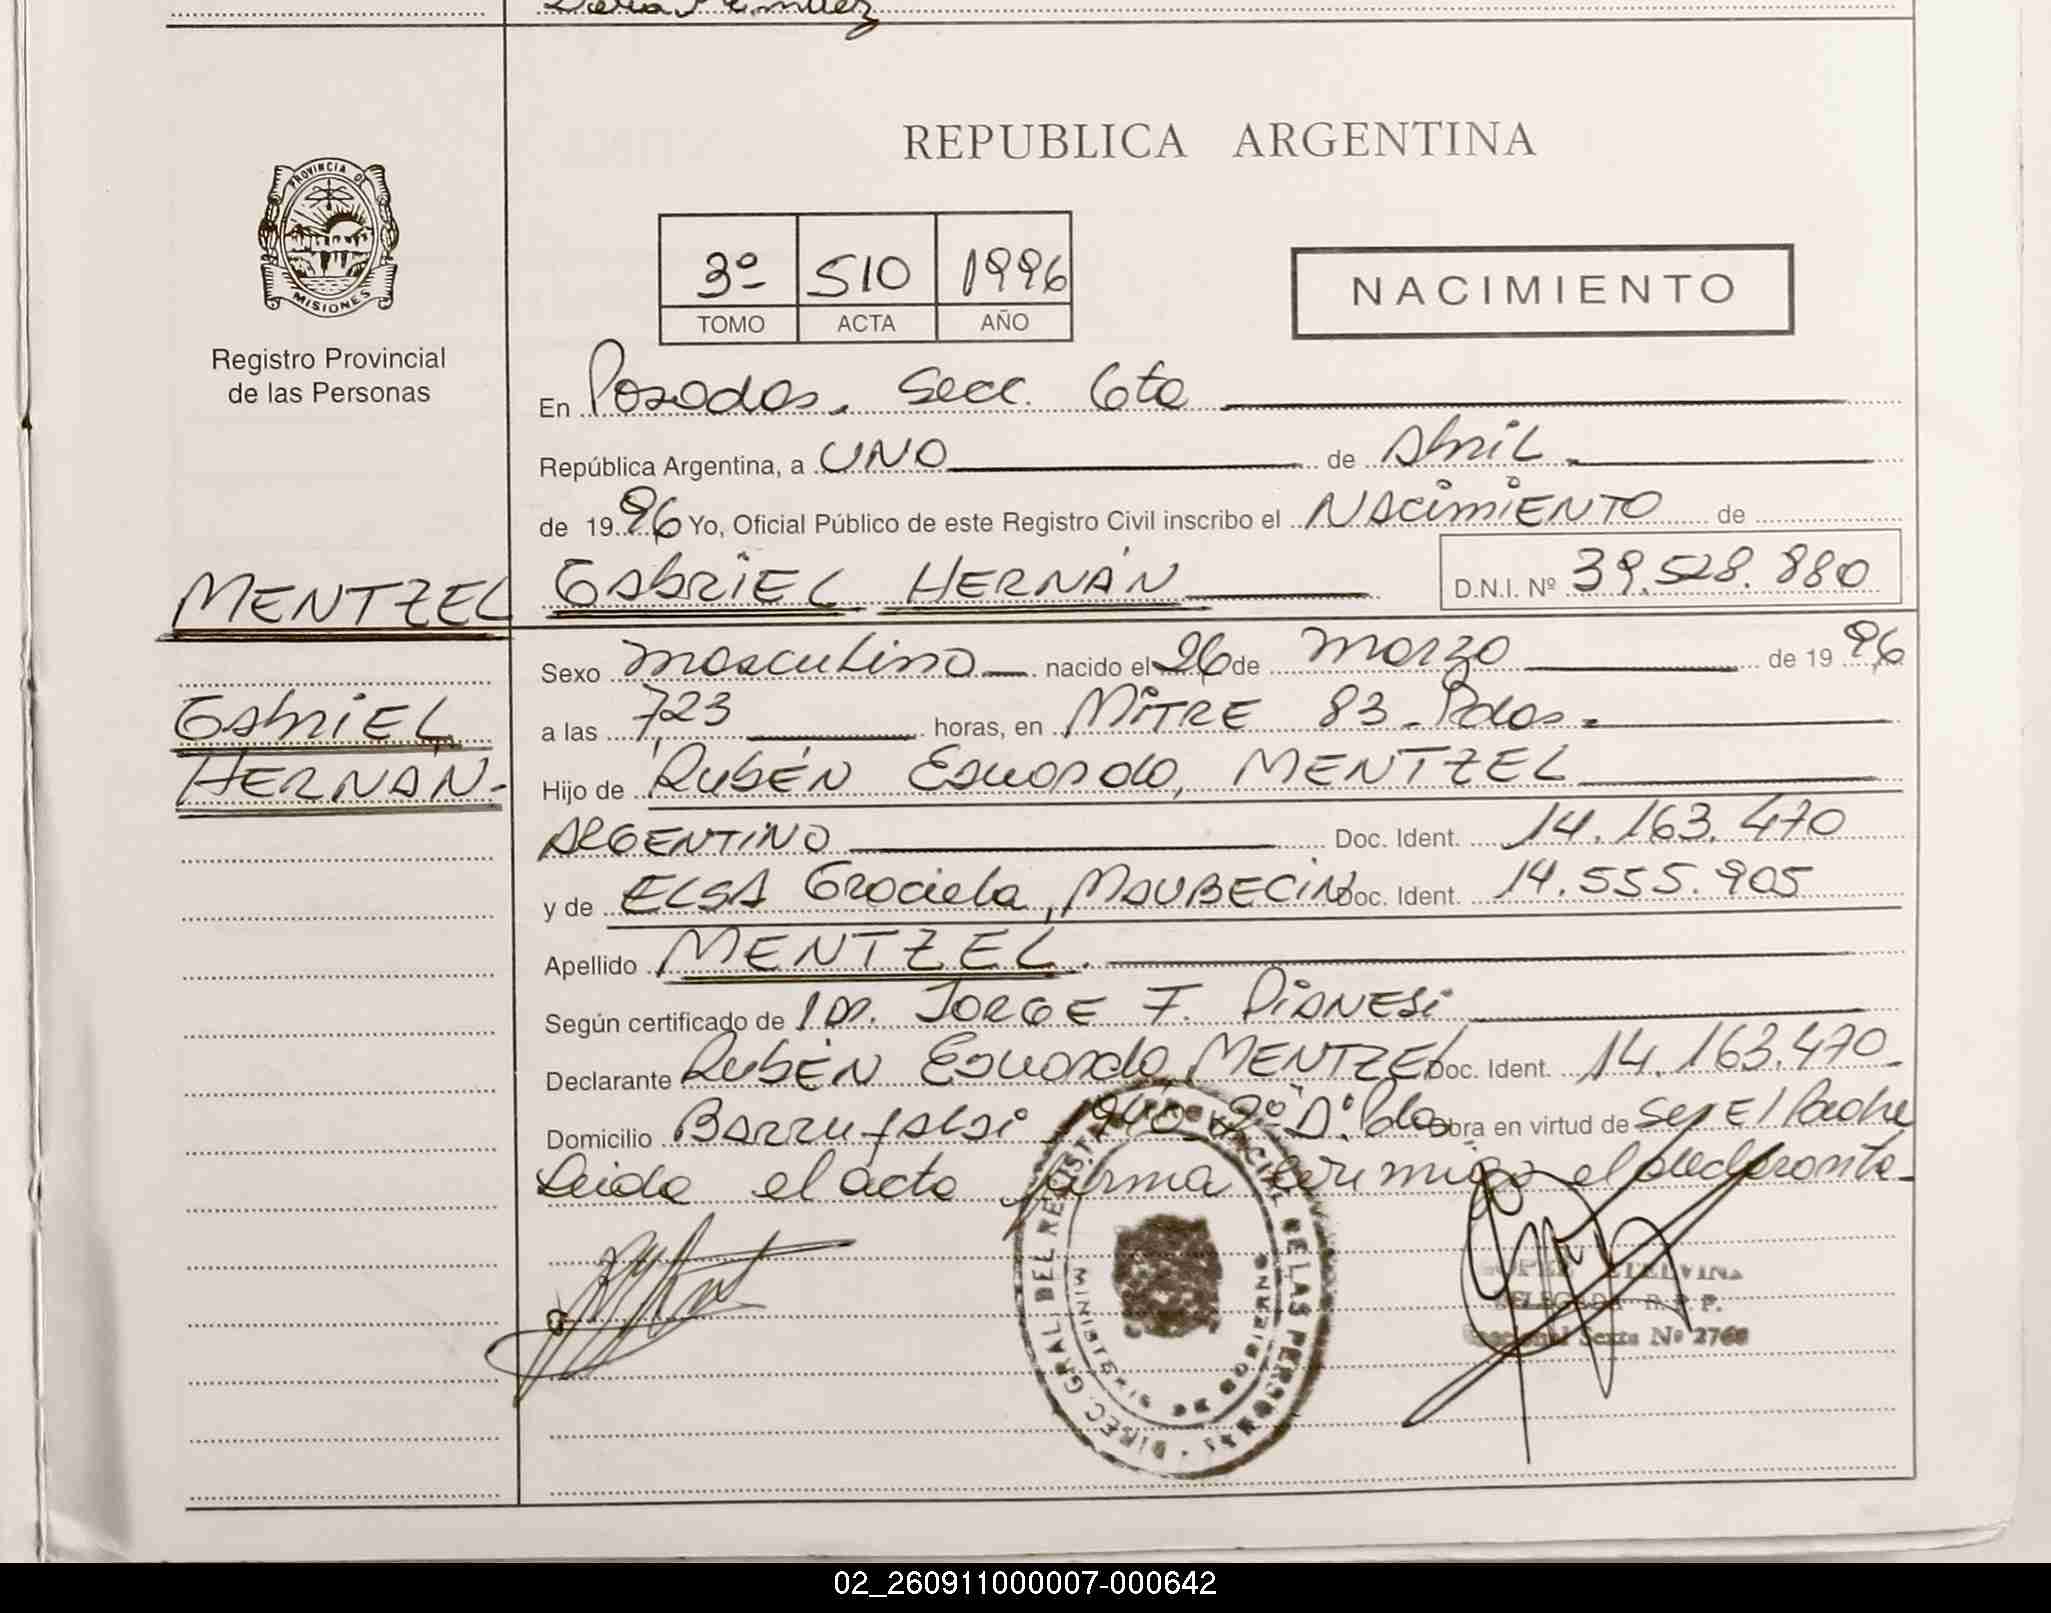 REPUBLICA ARGENTINA
PROVINCIA DE
MISIONES
Registro Provincial
de las Personas
3º 510 1996
TOMO ACTA AÑO
NACIMIENTO
En Posadas. Secc. 6ta
República Argentina, a UNO de Abril
de 1996 Yo, Oficial Público de este Registro Civil inscribo el NACIMIENTO de
MENTZEL GABRIEL HERNÁN D.N.I. Nº 39.528.880
Sexo masculino nacido el 26 de Marzo de 1996
GABRIEL a las 7,23 horas, en MITRE 83 - Pdas.
HERNAN.- Hijo de RUBÉN Eduardo, MENTZEL
ARGENTINO Doc. Ident. 14.163.470
y de ELSA Graciela, MAUBECIN Doc. Ident. 14.555.905
Apellido MENTZEL.
Según certificado de Dr. JORGE F. PIANESI
Declarante RUBÉN Eduardo MENTZEL Doc. Ident. 14.163.470-
Domicilio 1940 2º D. Pdas Obra en virtud de Ser El Padre
Leida el acta firma conmigo el declarante-
DIREC. GRAL DEL REGIST. PROVINCIAL DE LAS PERSONAS
MINISTERIO DE GOBIERNO
LOPEZ ETELVINA
DELEGADA R. P. P.
Seccional Sexta Nº 2768
02_260911000007-000642